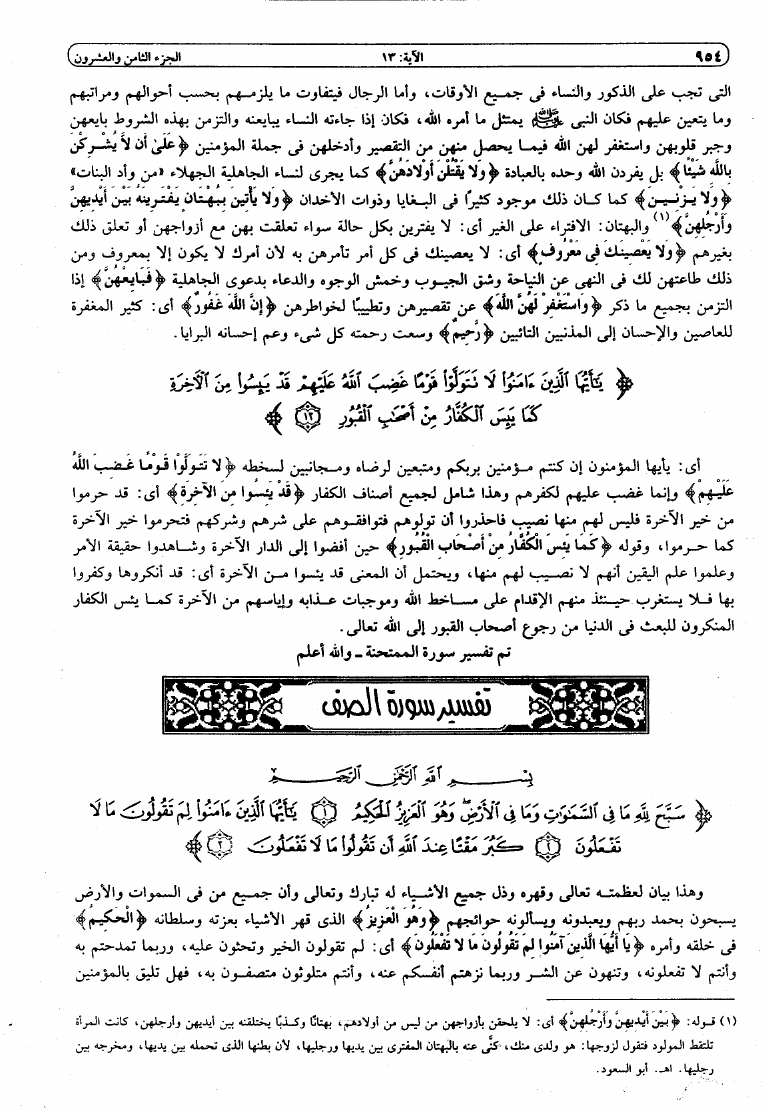 ٩٥٤ الآية: ١٣ الجزء الثامن والعشرون
التى تجب على الذكور والنساء فى جميع الأوقات، وأما الرجال فيتفاوت ما يلزمهم بحسب أحوالهم ومراتبهم
وما يتعين عليهم فكان النبى ﷺ يمتثل ما أمره الله، فكان إذا جاءته النساء يبايعنه والتزمن بهذه الشروط بايعهن
وجبر قلوبهن واستغفر لهن الله فيما يحصل منهن من التقصير وأدخلهن فى جملة المؤمنين ﴿عَلَىٰ أَن لَّا يُشْرِكْنَ
بِاللَّهِ شَيْئًا﴾ بل يفردن الله وحده بالعبادة ﴿وَلا يَقْتُلْنَ أَوْلادَهُنَّ﴾ كما يجرى لنساء الجاهلية الجهلاء «من وأد البنات»
﴿وَلا يَزْنِينَ﴾ كما كان ذلك موجود كثيرًا فى البغايا وذوات الأخدان ﴿وَلا يَأْتِينَ بِبُهْتَانٍ يَفْتَرِينَهُ بَيْنَ أَيْدِيهِنَّ
وَأَرْجُلِهِنَّ﴾(١) والبهتان: الافتراء على الغير أى: لا يفترين بكل حالة سواء تعلقت بهن مع أزواجهن أو تعلق ذلك
بغيرهم ﴿وَلا يَعْصِينَكَ فِى مَعْرُوفٍ﴾ أى: لا يعصينك فى كل أمر تأمرهن به لأن أمرك لا يكون إلا بمعروف ومن
ذلك طاعتهن لك فى النهى عن النياحة وشق الجيوب وخمش الوجوه والدعاء بدعوى الجاهلية ﴿فَبَايِعْهُنَّ﴾ إذا
التزمن بجميع ما ذكر ﴿وَاسْتَغْفِرْ لَهُنَّ اللَّهَ﴾ عن تقصيرهن وتطييبًا لخواطرهن ﴿إِنَّ اللَّهَ غَفُورٌ﴾ أى: كثير المغفرة
للعاصين والإحسان إلى المذنبين التائبين ﴿رَّحِيمٌ﴾ وسعت رحمته كل شىء وعم إحسانه البرايا.
﴿يَٰٓأَيُّهَا الَّذِينَ ءَامَنُوا لَا نَتَوَلَّوْا قَوْمًا غَضِبَ اللَّهُ عَلَيْهِمْ قَدْ يَئِسُوا مِنَ الْآخِرَةِ
كَمَا يَئِسَ الْكُفَّارُ مِنْ أَصْحَابِ الْقُبُورِ ١٣﴾
أى: يأيها المؤمنون إن كنتم مؤمنين بربكم ومتبعين لرضاه ومجانبين لسخطه ﴿لا تَتَوَلَّوْا قَوْمًا غَضِبَ اللَّهُ
عَلَيْهِمْ﴾ وإنما غضب عليهم لكفرهم وهذا شامل لجميع أصناف الكفار ﴿قَدْ يَئِسُوا مِنَ الآخِرَةِ﴾ أى: قد حرموا
من خير الآخرة فليس لهم منها نصيب فاحذروا أن تولوهم فتوافقوهم على شرهم وشركهم فتحرموا خير الآخرة
كما حرموا، وقوله ﴿كَمَا يَئِسَ الْكُفَّارُ مِنْ أَصْحَابِ الْقُبُورِ﴾ حين أفضوا إلى الدار الآخرة وشاهدوا حقيقة الأمر
وعلموا علم اليقين أنهم لا نصيب لهم منها، ويحتمل أن المعنى قد يئسوا من الآخرة أى: قد أنكروها وكفروا
بها فلا يستغرب حينئذ منهم الإقدام على مساخط الله وموجبات عذابه وإياسهم من الآخرة كما يئس الكفار
المنكرون للبعث فى الدنيا من رجوع أصحاب القبور إلى الله تعالى.
تم تفسير سورة الممتحنة ـ والله أعلم
تفسير سورة الصف
بِسْمِ اللَّهِ الرَّحْمَٰنِ الرَّحِيمِ
﴿سَبَّحَ لِلَّهِ مَا فِى السَّمَٰوَٰتِ وَمَا فِى الْأَرْضِ وَهُوَ الْعَزِيزُ الْحَكِيمُ ١ يَٰٓأَيُّهَا الَّذِينَ ءَامَنُوا لِمَ تَقُولُونَ مَا لَا
تَفْعَلُونَ ٢ كَبُرَ مَقْتًا عِندَ اللَّهِ أَن تَقُولُوا مَا لَا تَفْعَلُونَ ٣﴾
وهذا بيان لعظمته تعالى وقهره وذل جميع الأشياء له تبارك وتعالى وأن جميع من فى السموات والأرض
يسبحون بحمد ربهم ويعبدونه ويسألونه حوائجهم ﴿وَهُوَ الْعَزِيزُ﴾ الذى قهر الأشياء بعزته وسلطانه ﴿الْحَكِيمُ﴾
فى خلقه وأمره ﴿يَا أَيُّهَا الَّذِينَ آمَنُوا لِمَ تَقُولُونَ مَا لا تَفْعَلُونَ﴾ أى: لم تقولون الخير وتحثون عليه، وربما تمدحتم به
وأنتم لا تفعلونه، وتنهون عن الشر وربما نزهتم أنفسكم عنه، وأنتم متلوثون متصفون به، فهل تليق بالمؤمنين
(١) قوله: ﴿بَيْنَ أَيْدِيهِنَّ وَأَرْجُلِهِنَّ﴾ أى: لا يلحقن بأزواجهن من ليس من أولادهم، بهتانًا وكذبًا يختلقنه بين أيديهن وأرجلهن، كانت المرأة
تلتقط المولود فتقول لزوجها: هو ولدى منك، كنَّى عنه بالبهتان المفترى بين يديها ورجليها، لأن بطنها الذى تحمله بين يديها، ومخرجه بين
رجليها. اهـ. أبو السعود.